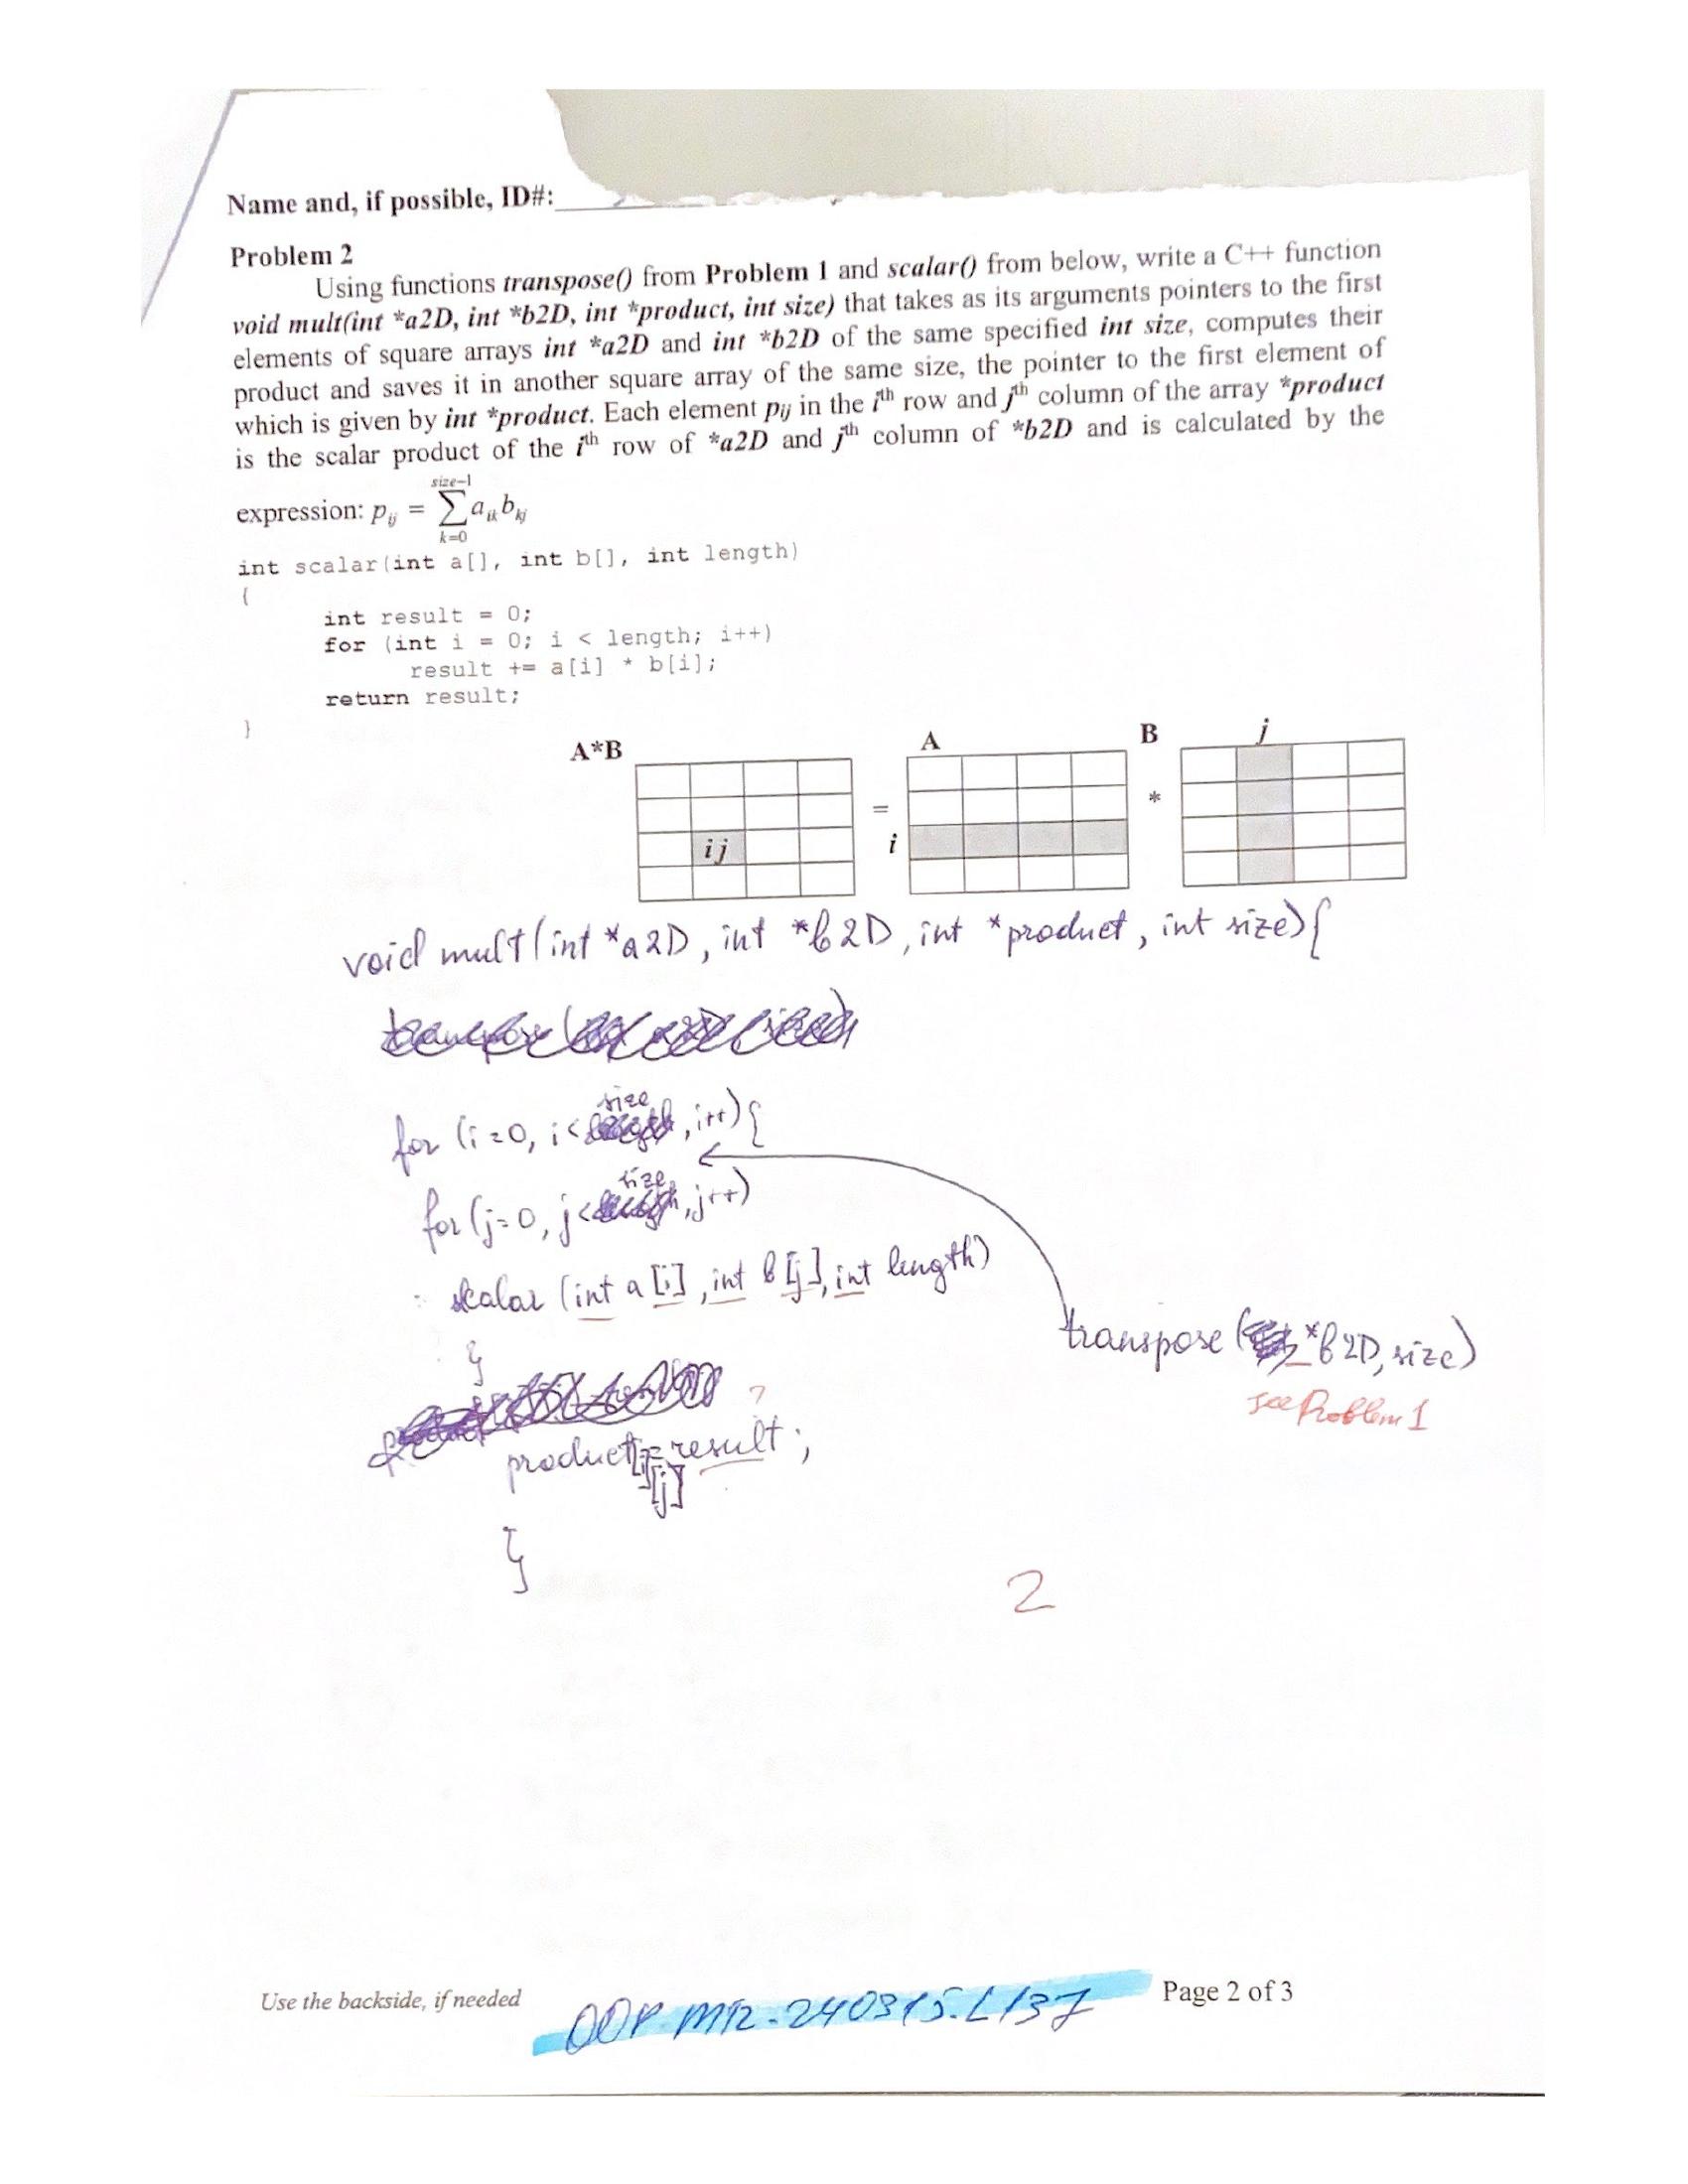 Name and, if possible, ID#:
Problem 2
Using functions transpose() from Problem 1 and scalar() from below, write a C++ function
void mult(int *a2D, int *b2D, int *product, int size) that takes as its arguments pointers to the first
elements of square arrays int *a2D and int *b2D of the same specified int size, computes their
product and saves it in another square array of the same size, the pointer to the first element of
which is given by int *product. Each element pij in the ith row and jth column of the array *product
is the scalar product of the ith row of *a2D and jth column of *b2D and is calculated by the
expression: pij = size-1 ∑ k=0 aik bkj
int scalar(int a[], int b[], int length)
{
int result = 0;
for (int i = 0; i < length; i++)
result += a[i] * b[i];
return result;
}
A*B = A * B j
i j i
void mult(int *a2D, int *b2D, int *product, int size){
for (i=0, i<size, i++){
for (j=0, j<size, j++)
scalar (int a[i], int b[j], int length)
transpose(*b2D, size)
}
see Problem 1
?
product[i][j]=result;
}
2
Use the backside, if needed
OOP.MR.240315.L137
Page 2 of 3